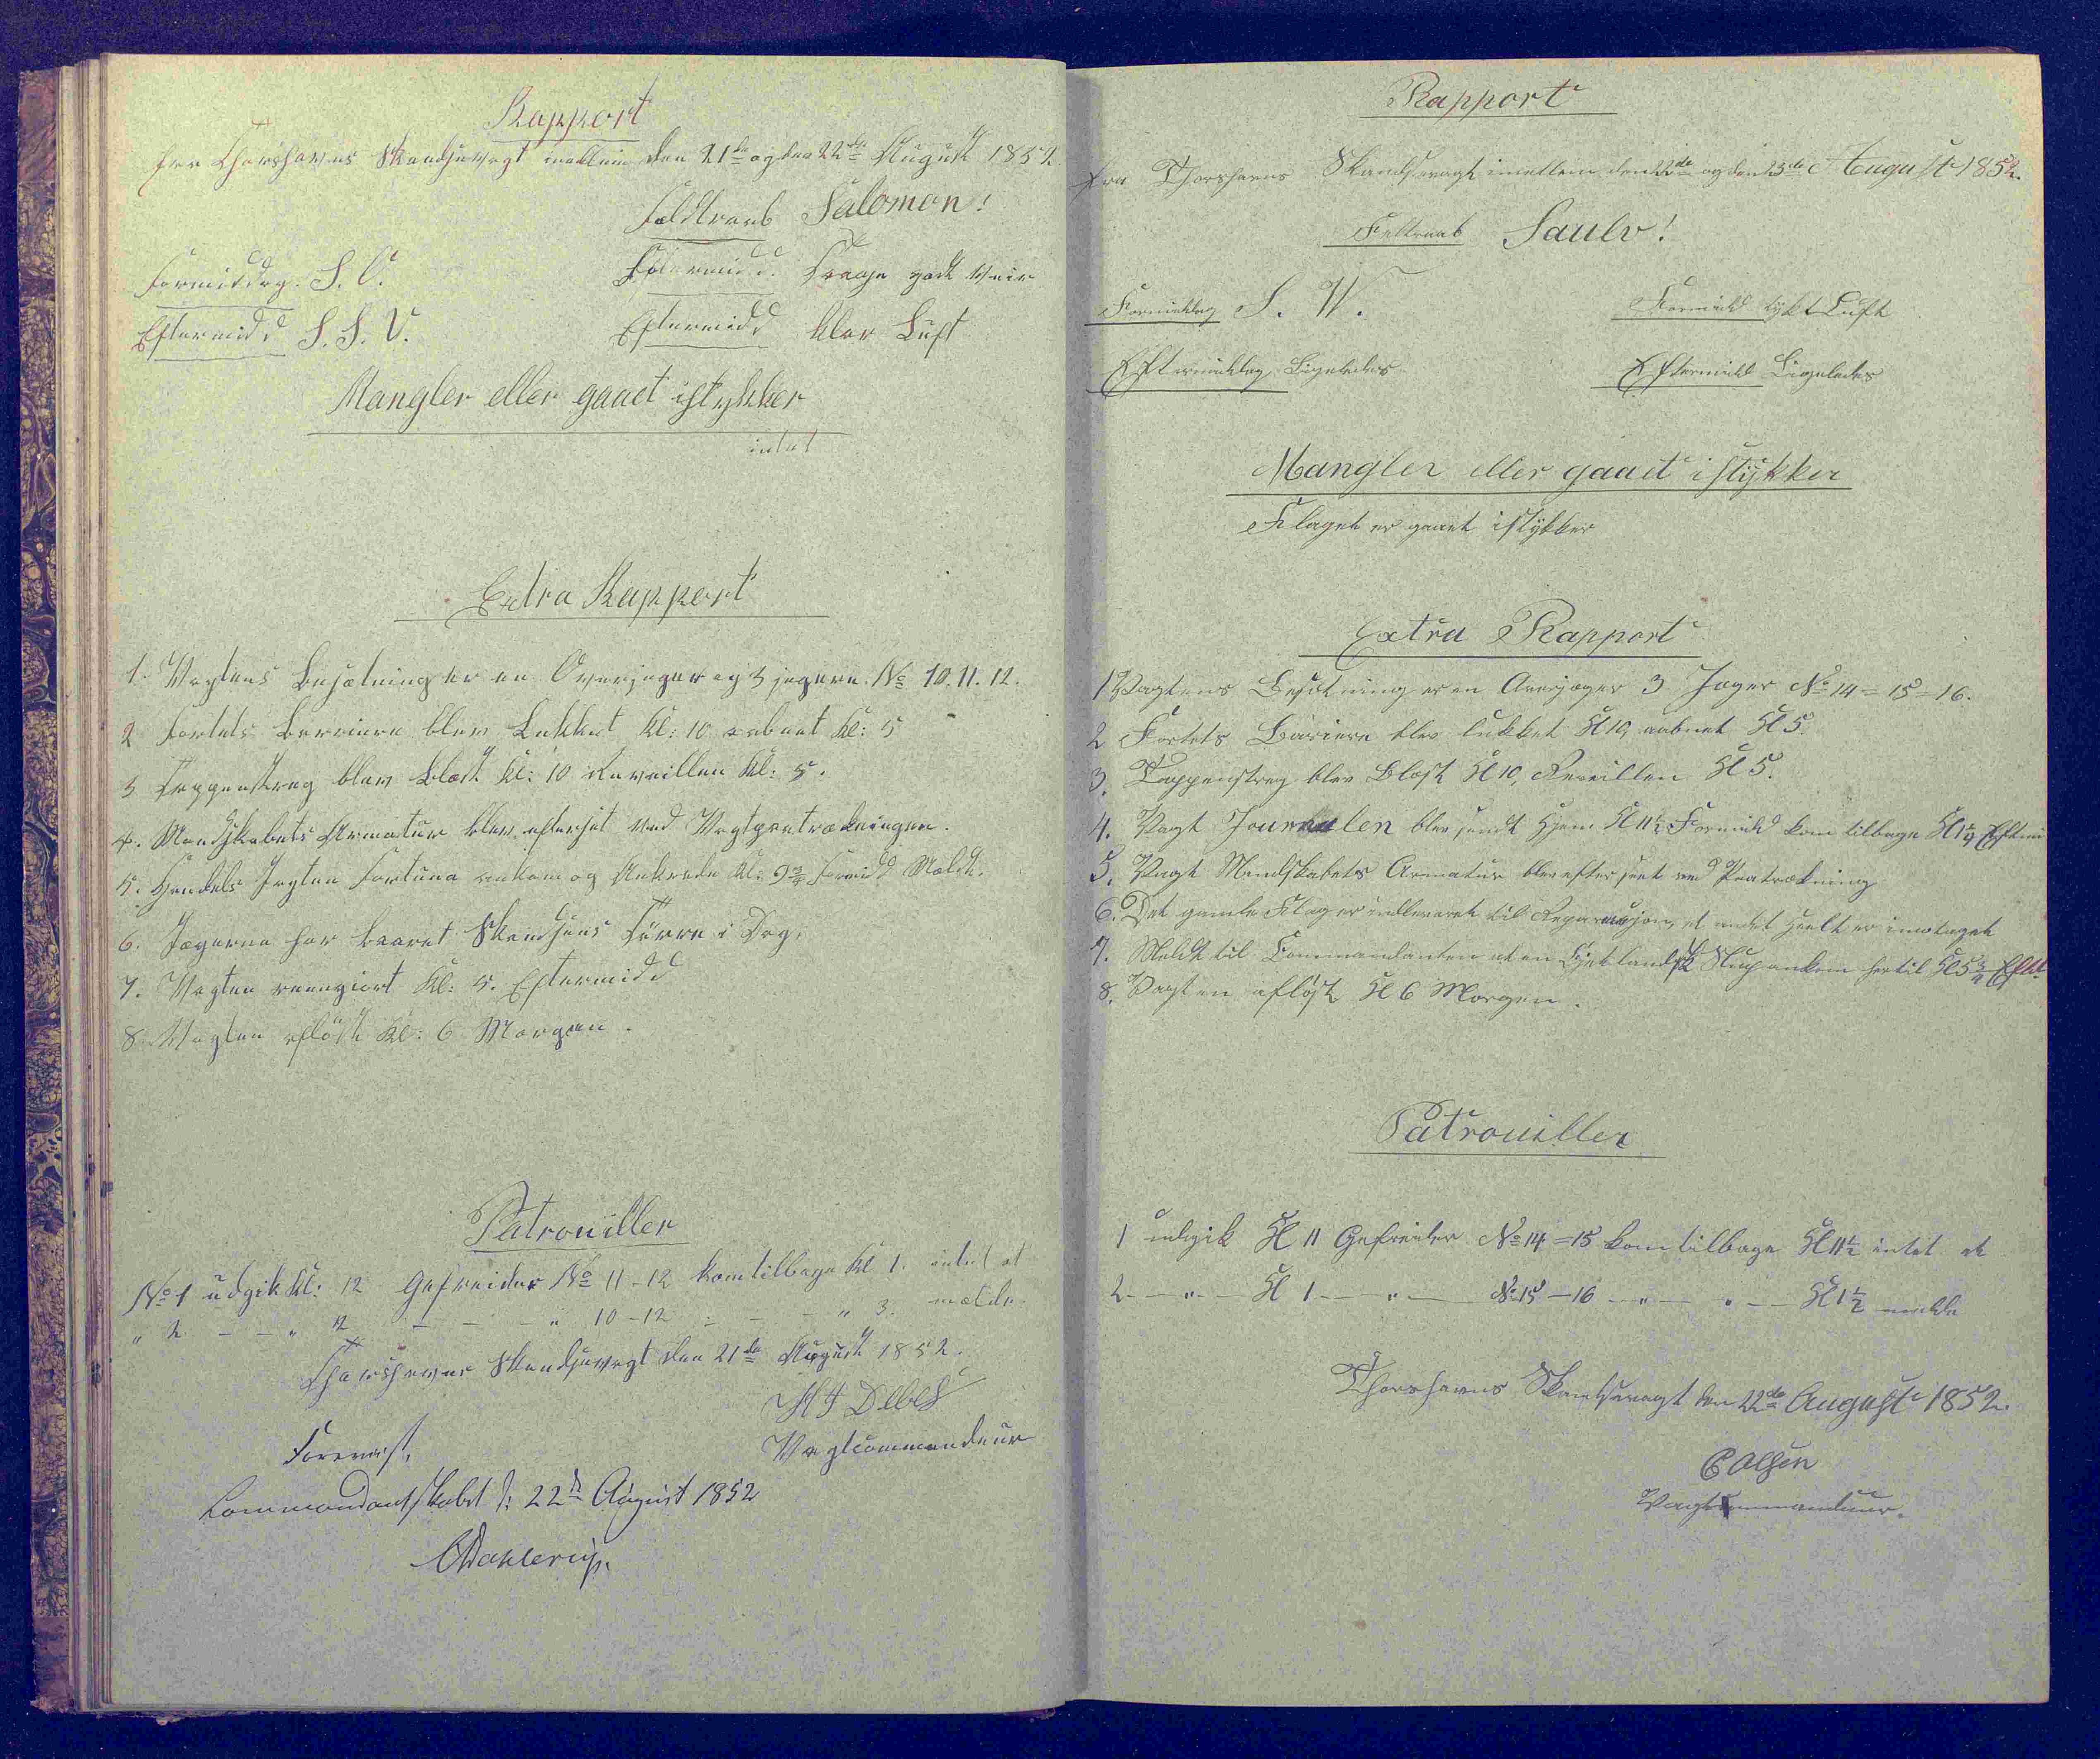 Rapport
fra Thorshavns Skandsevagt imellem den 21de og den 22de August 1852
Feldtraab Salomon!
Formiddag. S. V.
Formidd. Svage godt Veir
Eftermidd S. S. V.
Eftermidd klar Luft
Mangler eller gaaet istykker
intet
Extra Rapport
1. Vagtens Besætning er en Overjæger og 3 jægere. No 10. 11. 12.
2 Fortets Barriere blev Lukket Kl: 10 aabnet Kl: 5
3 Tappenstreg blev Blæst Kl: 10 Reveillen Kl: 5.
4. Mandskabets Armatur blev efterset ved Vagtparetrædningen.
5. Handels Jagten Fortuna ankom og Ankrede Kl: 9 3/4 Formidd Meldt.
6. Jægerne har baaret Skandsens Tørv i Dag.
7. Vagten reengjort Kl: 5. Eftermidd
8 Vagten afløst Kl: 6 Morgen.
Patrouiller
No 1 udgik Kl: 12 Gefreider No 11 - 12 kom tilbage Kl 1. intet at
" 2 - - " 2 - - - " 10 - 12 - - - " 3. melde.
Thorshavns Skandsevagt den 21de August 1852.
H J Debes
Vagtcommandeur
Forevist,
Commandantskabet d: 22de August 1852
CDahlerup.
Rapport
fra Thorshavns Skandsevagt imellem den 22de og den 23de August 1852.
Feltraab Saulv!
Formiddag S. W.
Formidd tykt Luft
Eftermiddag Ligeledes
Eftermidd Ligeledes
Mangler eller gaaet istykker
Flaget er gaaet istykker
Extra Rapport
1 Vagtens Besætning er en Overjæger 3 Jæger No 14 = 15 = 16.
2 Fortets Bariere blev lukket Kl 10, aabnet Kl 5.
3. Tappenstreg blev Blæst Kl 10, Reveillen Kl 5.
4. Vagt Journalen blev sendt Hjem Kl 11 1/2 Formidd kom tilbage Kl 1 1/4 Efterm
5. Vagt Mandskabets Armatur blev efterseet ved Paatrækning
6. Det gamle Flag er indleveret til Reparasjon, et andet heelt er imotaget
7. Meldt til Commandanten at en Sjetlandsk Slup ankom hertil Kl 5 1/2 Eftm.
8. Vagten afløst Kl 6 Morgen.
Patrouiller
1 udgik Kl 11 Gefreider No 14 = 15 kom tilbage Kl 11 1/2 intet at
2 - " - Kl 1 - " - No 15 - 16 - " - " - Kl 1 1/2 melde
Thorshavns Skandsevagt den 22de August 1852.
Olsen
Vagtcommandeur.